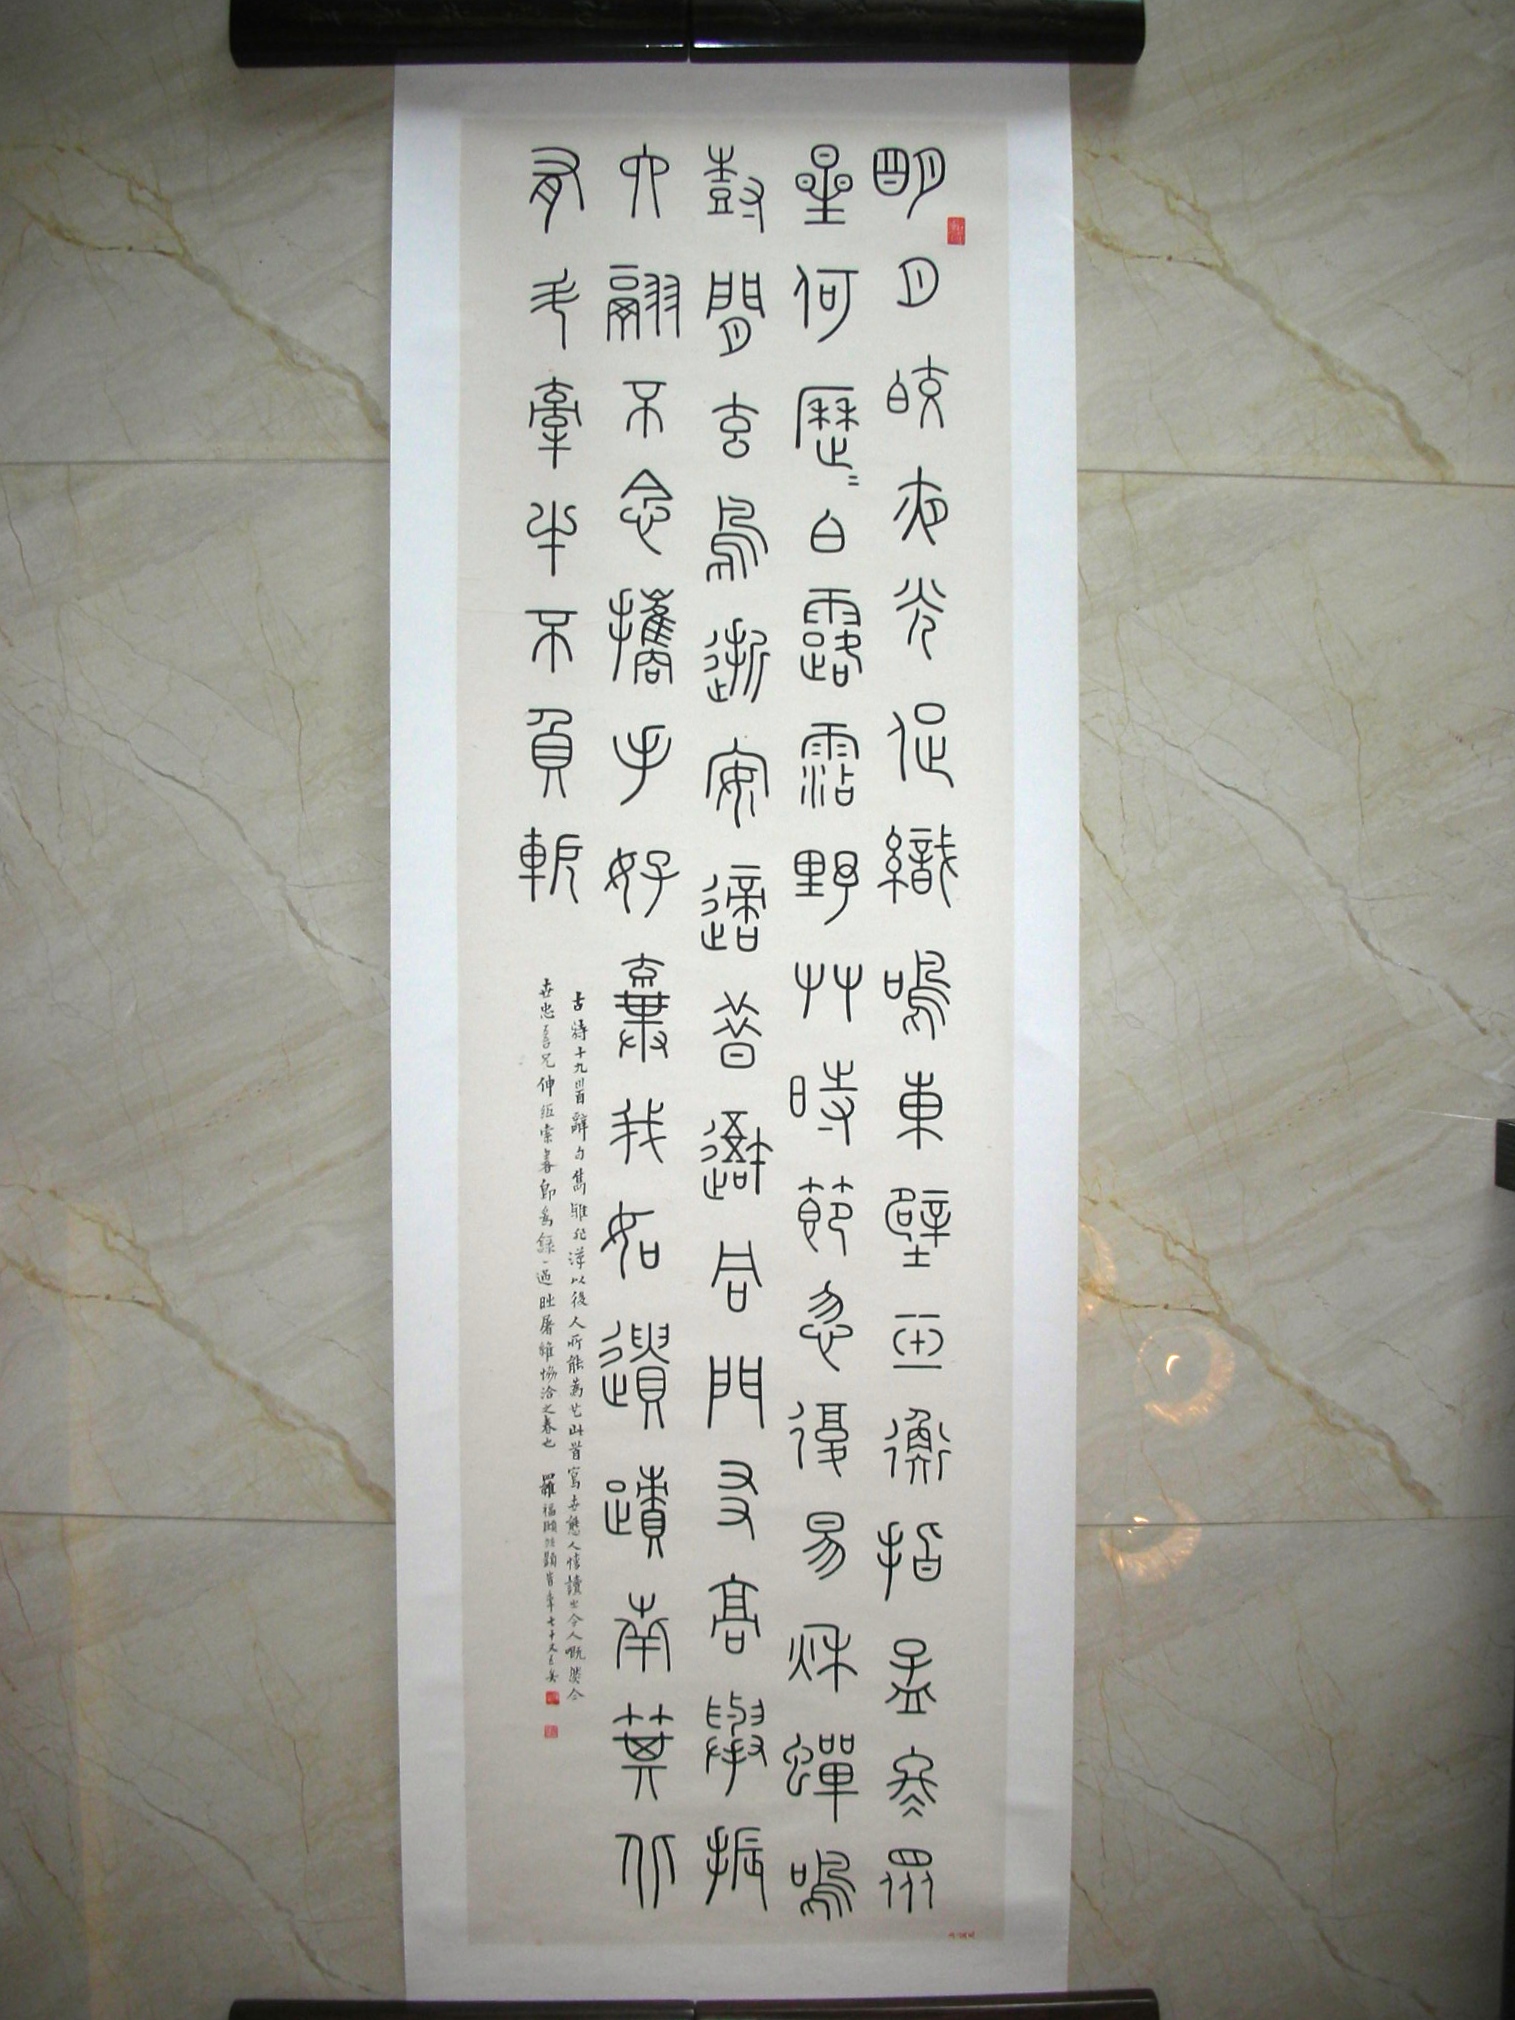 明月皎夜光促織鳴東壁玉衡指孟冬眾
星何歷〻白露霑野艸時節忽復易秋蟬鳴
尌閒玄鳥逝安適昔吾同門友高舉振
六翮不念攜手好棄我如遺蹟南箕北
有斗牽牛不負軛
古詩十九首辭句雋雅非漢以後人所能為也此首寫世態人情讀之令人嘅然今
世忠吾兄伸紙索書即為錄一過時屠維協洽之春也 羅福頤 年七十又五矣